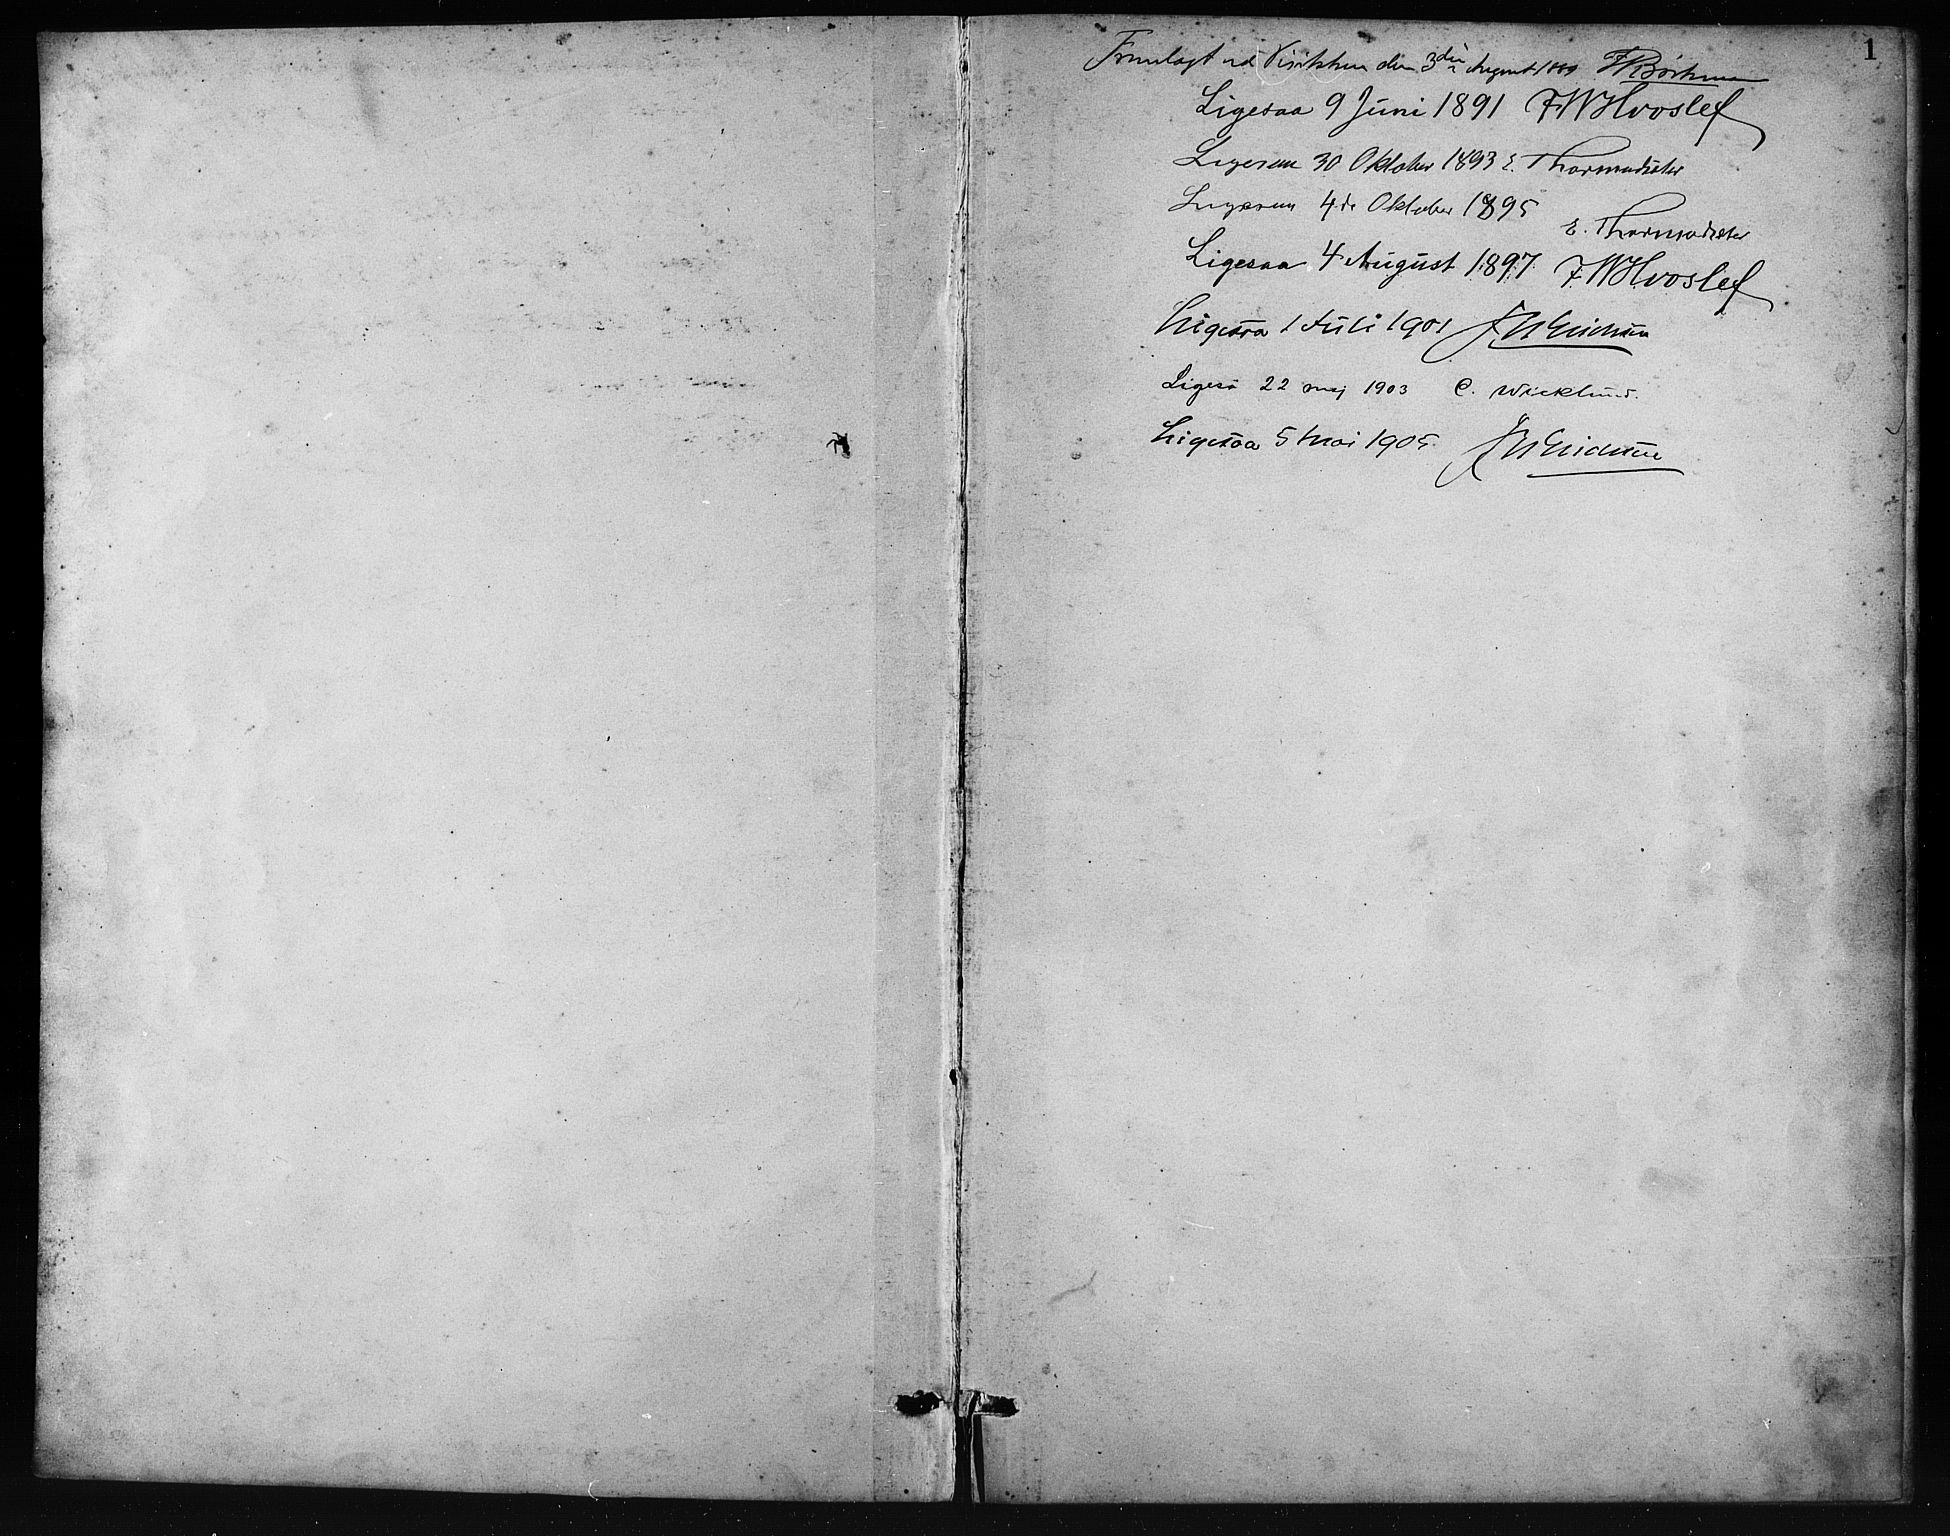 1
Fremlagt ved Visitatsen den 3die August 1889 JRBörkman
Ligesaa 9 Juni 1891 FWHvoslef
Ligesaa 30 Oktober 1893 E. Thormodsæter
Ligesaa 4de Oktober 1895
E. Thormodsæter
Ligesaa 4 August 1897 FWHvoslef
Ligesaa 1 Juli 1901
Ligeså 22 maj 1903 C. Wicklund.
Ligesaa 5 Mai 1905.